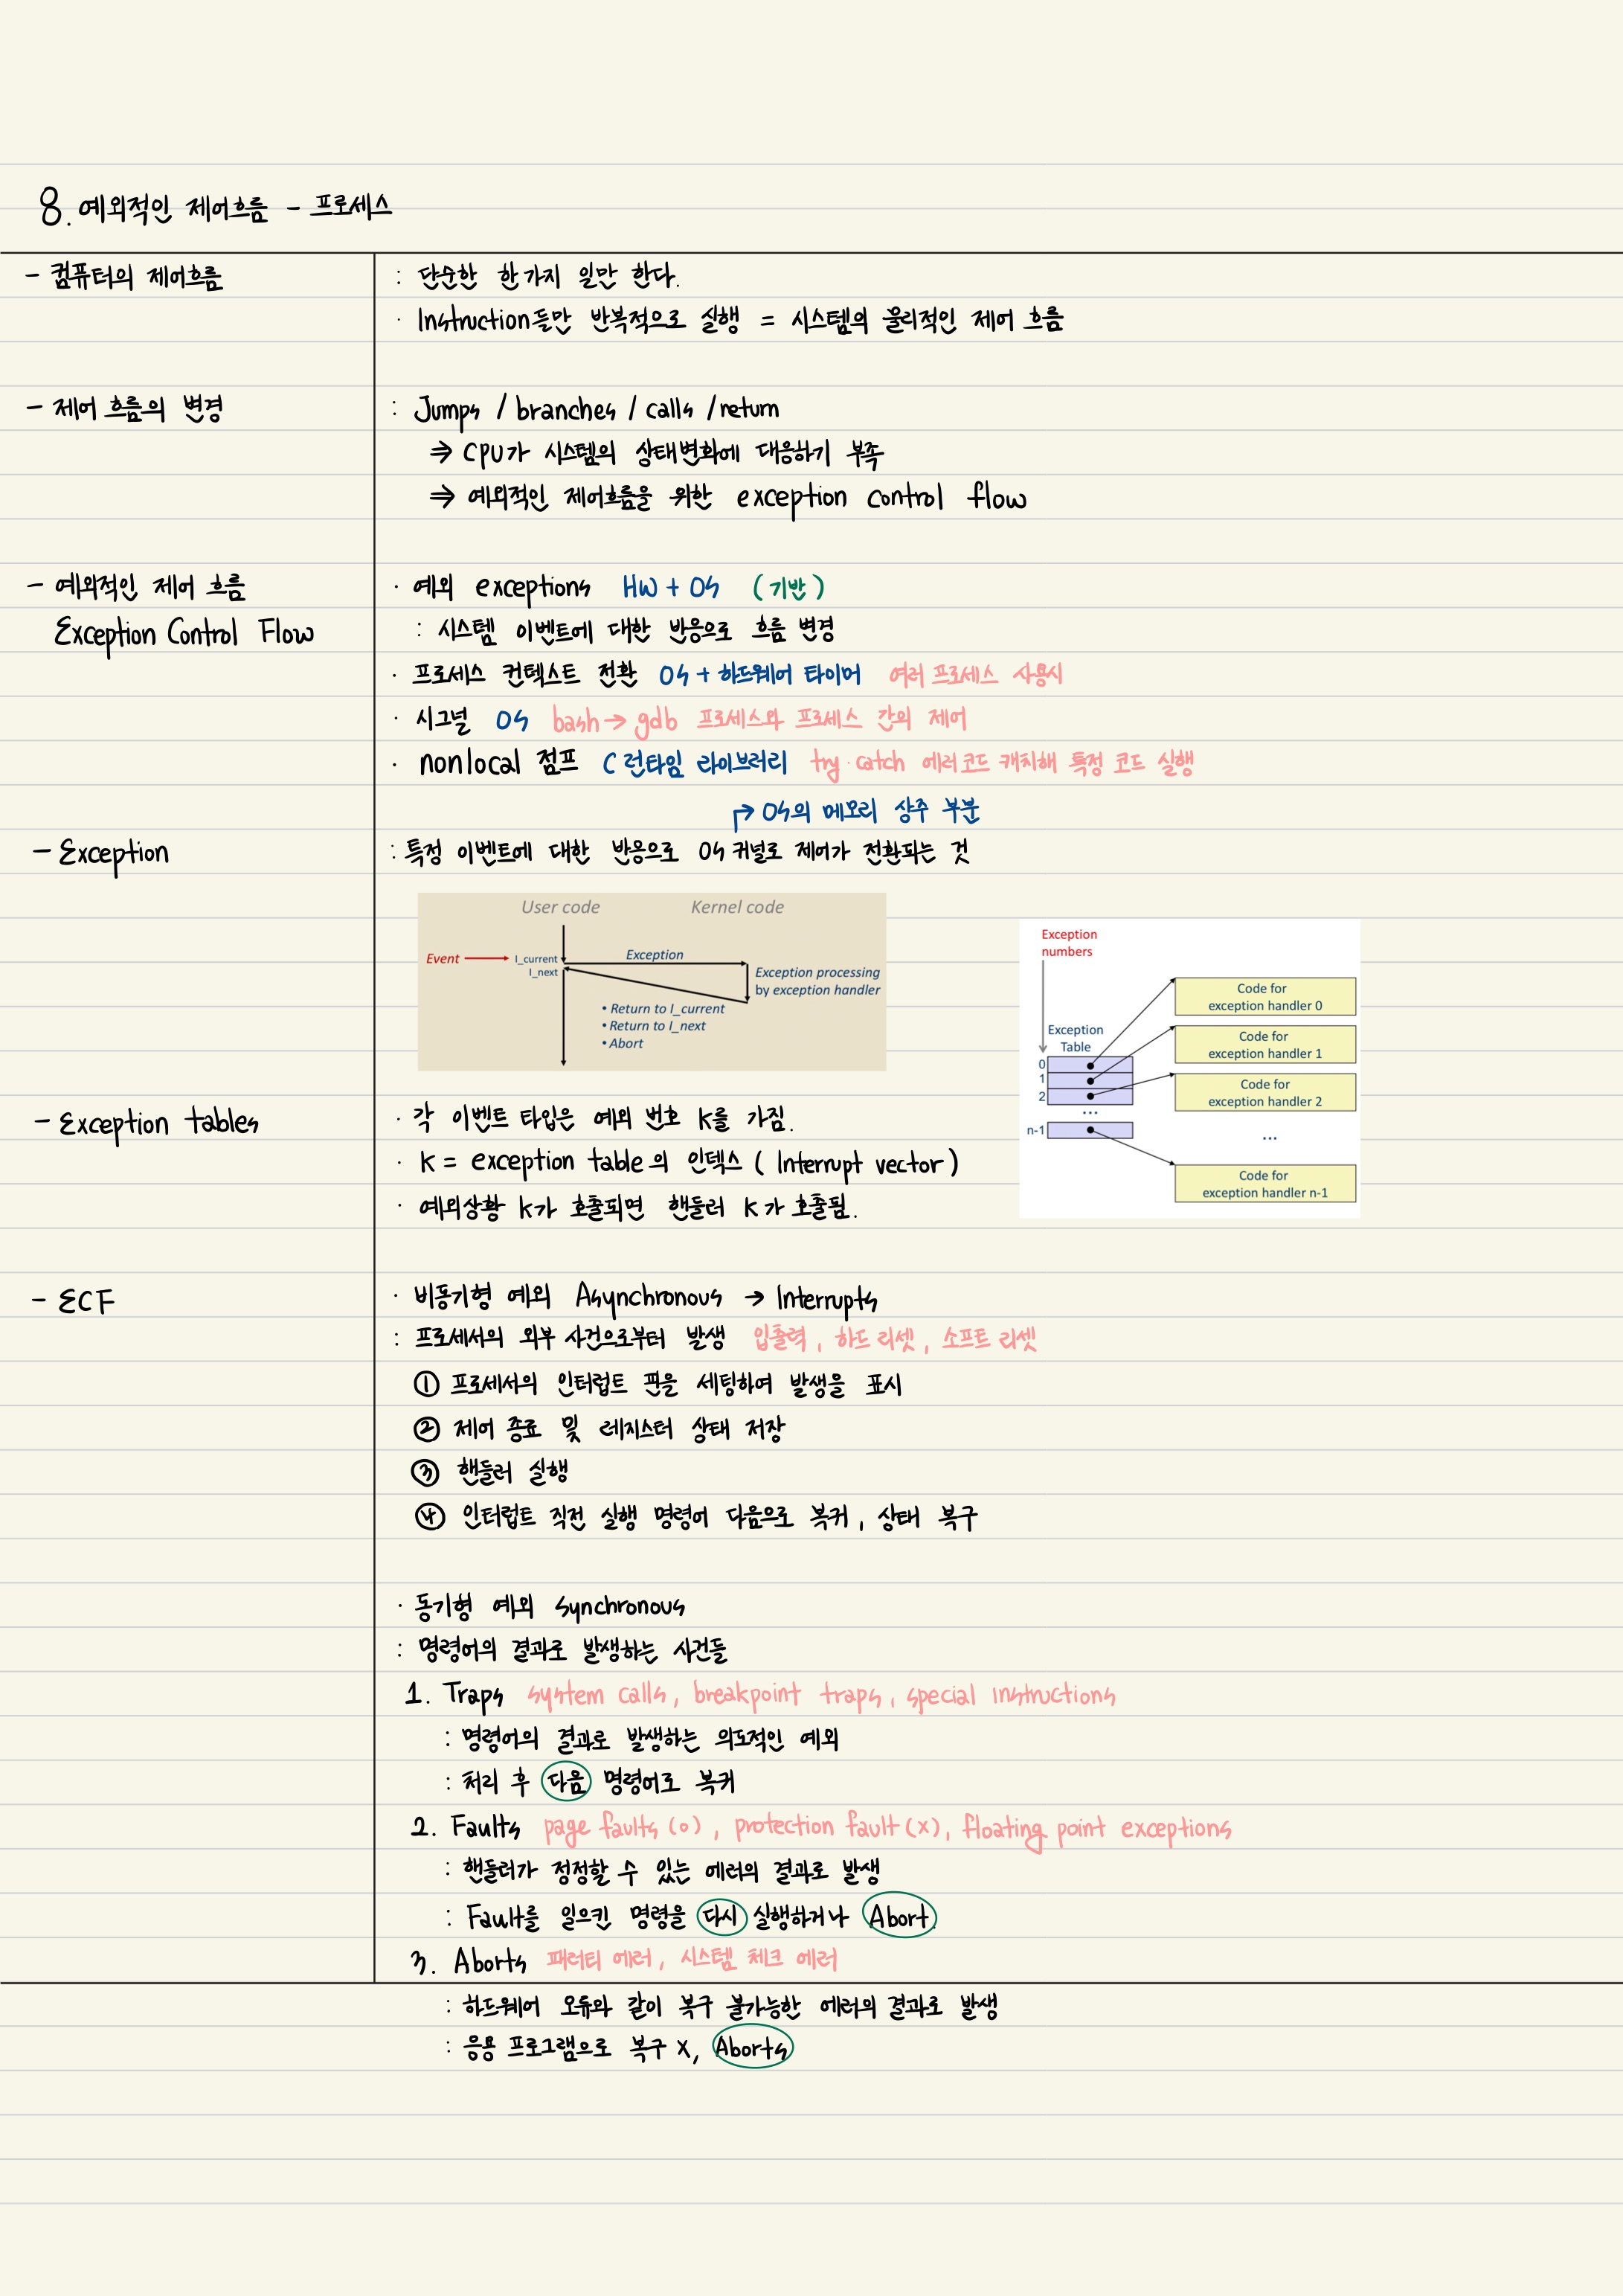 8. 예외적인 제어흐름 - 프로세스
- 컴퓨터의 제어흐름
: 단순한 한가지 일만 한다.
· Instruction들만 반복적으로 실행 = 시스템의 물리적인 제어 흐름
- 제어 흐름의 변경
: Jumps / branches / calls / return
⇒ CPU가 시스템의 상태변화에 대응하기 부족
⇒ 예외적인 제어흐름을 위한 exception control flow
- 예외적인 제어 흐름
Exception Control Flow
· 예외 exceptions HW + OS (기반)
: 시스템 이벤트에 대한 반응으로 흐름 변경
· 프로세스 컨텍스트 전환 OS + 하드웨어 타이머 여러 프로세스 사용시
· 시그널 OS bash → gdb 프로세스와 프로세스 간의 제어
· nonlocal 점프 C 런타임 라이브러리 try·catch 에러코드 캐치해 특정 코드 실행
↱ OS의 메모리 상주 부분
- Exception
: 특정 이벤트에 대한 반응으로 OS 커널로 제어가 전환되는 것
User code Kernel code
Event I_current Exception
I_next
Exception processing
by exception handler
• Return to I_current
• Return to I_next
• Abort
Exception
numbers
Exception
Table
0
1
2
...
n-1
Code for
exception handler 0
Code for
exception handler 1
Code for
exception handler 2
...
Code for
exception handler n-1
- Exception tables
· 각 이벤트 타입은 예외 번호 K를 가짐.
· K = exception table의 인덱스 ( Interrupt vector )
· 예외상황 K가 호출되면 핸들러 K가 호출됨.
- ECF
· 비동기형 예외 Asynchronous → Interrupts
: 프로세서의 외부 사건으로부터 발생 입출력, 하드 리셋, 소프트 리셋
① 프로세서의 인터럽트 핀을 세팅하여 발생을 표시
② 제어 종료 및 레지스터 상태 저장
③ 핸들러 실행
④ 인터럽트 직전 실행 명령어 다음으로 복귀, 상태 복구
· 동기형 예외 synchronous
: 명령어의 결과로 발생하는 사건들
1. Traps system calls, breakpoint traps, special instructions
: 명령어의 결과로 발생하는 의도적인 예외
: 처리 후 다음 명령어로 복귀
2. Faults page faults (o), protection fault (x), floating point exceptions
: 핸들러가 정정할 수 있는 에러의 결과로 발생
: Fault를 일으킨 명령을 다시 실행하거나 Abort.
3. Aborts 패러티 에러, 시스템 체크 에러
: 하드웨어 오류와 같이 복구 불가능한 에러의 결과로 발생
: 응용 프로그램으로 복구 X, Aborts